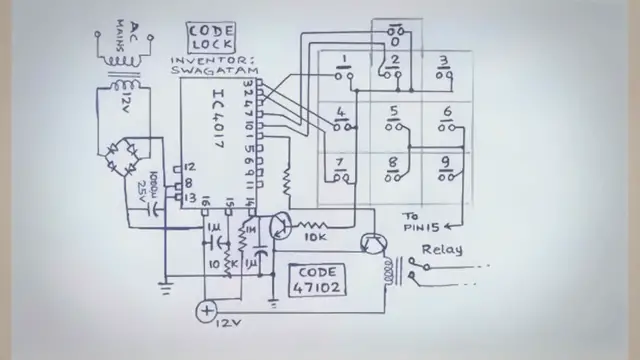 AC
MAINS
12V
CODE
LOCK
INVENTOR:
SWAGATAM
IC 4017
3
2
4
7
10
1
5
6
9
11
12
8
13
16
15
14
1000µ
25V
1µ
10K
1M
1µ
10K
12V
CODE
47102
0
1
2
3
4
5
6
7
8
9
TO
PIN15
Relay